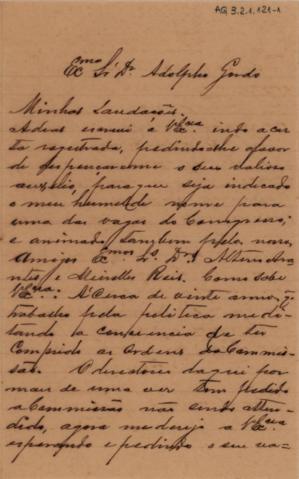 AG 3.2.1.121-1
Exmo Sr Dr Adolpho Gordo
Minhas Saudações.
escrevi a V. Excia indo a car
ta registrada, pedindo-lhe o favor
de dispençar-me o seu valioso
auxilio, para que seja indicado
o meu humilde nome para
uma das vagas do Congresso;
e animado tambem pelo nosso
Amigos Exmos Srs Drs Altino Aran
tes e Meirelles Reis. Como sabe
V. Excia: A cerca de vinte annos, q
trabalho pela politica
tando a consciencia de ter
Comprido as Ordens da Commis
são. O directorio daqui por
mais de uma vez tem pedido
a Commissão não sendo atten
dido, agora me dirijo a V. Excia
esperando e pedindo o seu va-